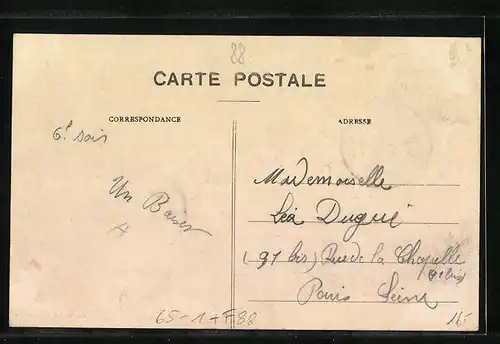 88
CARTE POSTALE
CORRESPONDANCE
ADRESSE
soir
Un Baiser
Mademoiselle
Léa Dugué
(91 bis) Rue de la Chapelle
(91 bis)
Paris Seine
65-1+F88